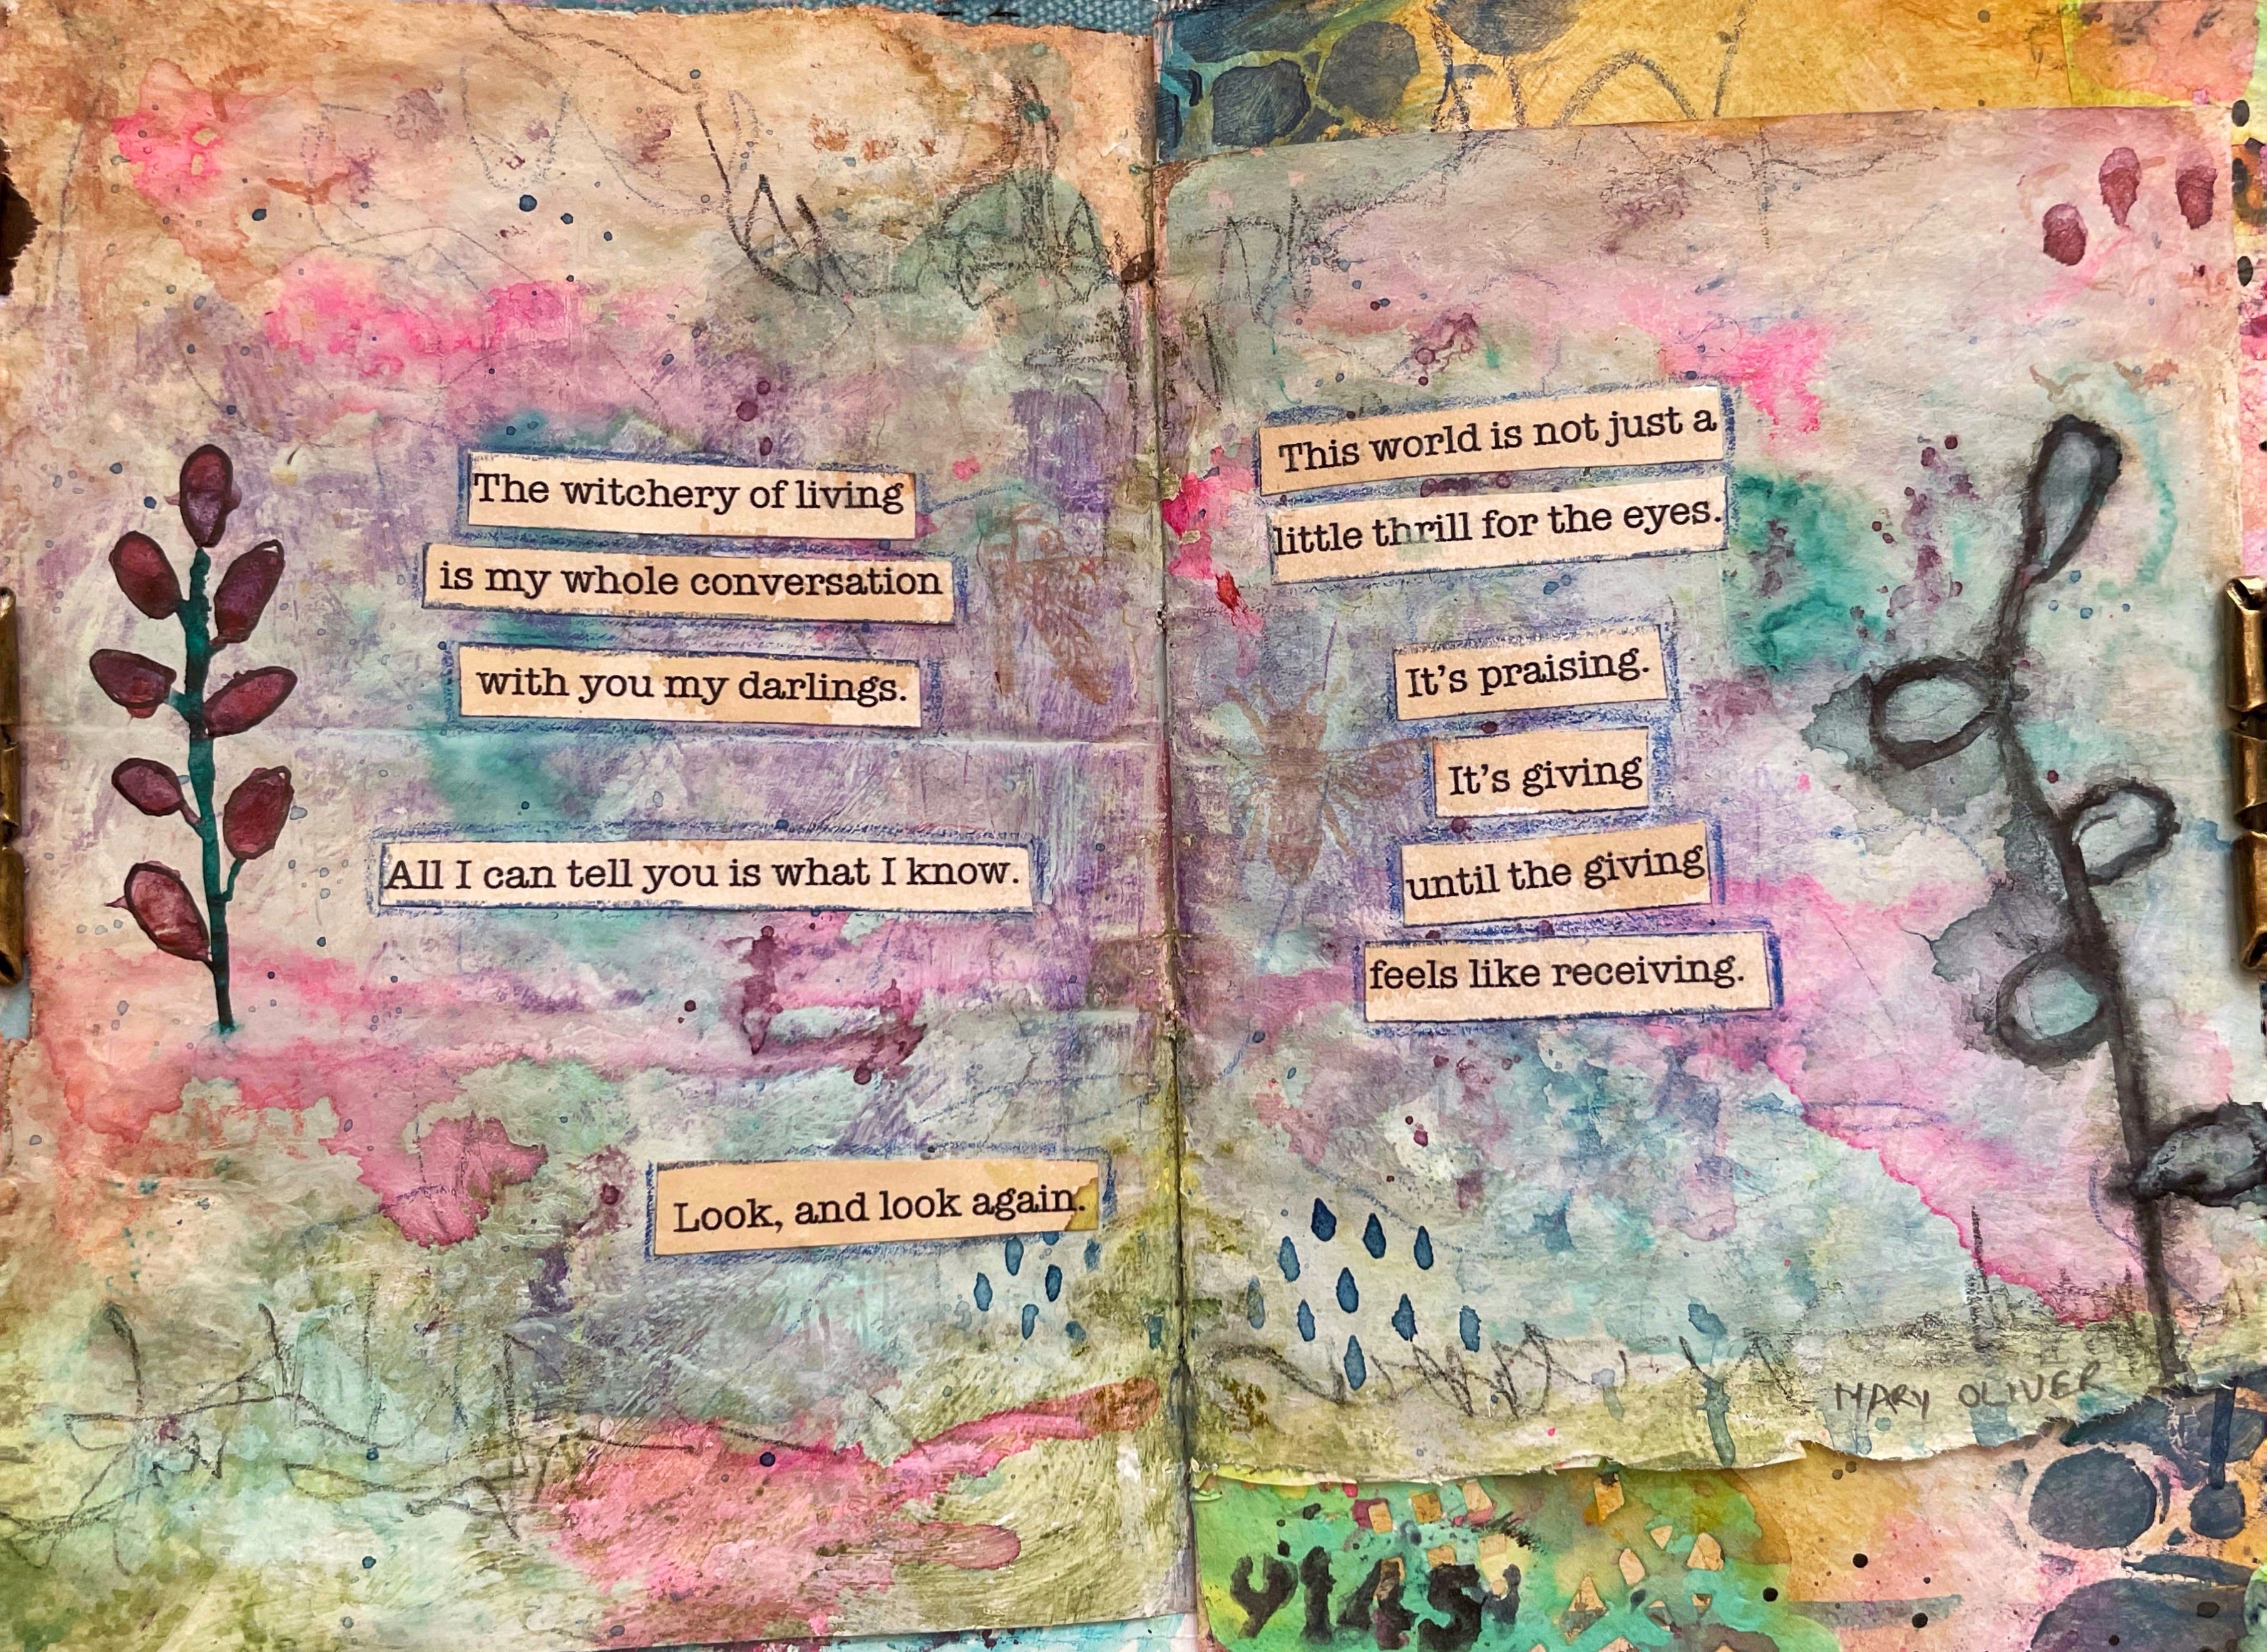 The witchery of living
is my whole conversation
with you my darlings.
All I can tell you is what I know.
Look, and look again.
This world is not just a
little thrill for the eyes.
It's praising.
It's giving
until the giving
feels like receiving.
MARY OLIVER
9145